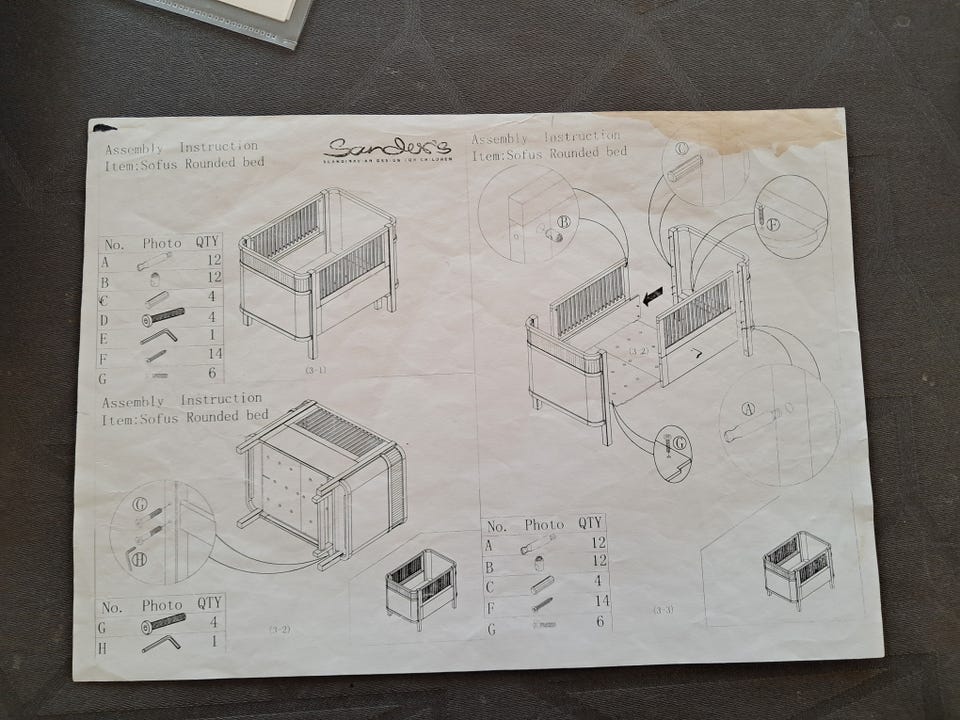 Assembly Instruction
Item:Sofus Rounded bed
Sander's
SCANDINAVIAN DESIGN FOR CHILDREN
No. Photo QTY
A 12
B 12
C 4
D 4
E 1
F 14
G 6
(3-1)
Assembly Instruction
Item:Sofus Rounded bed
G
H
No. Photo QTY
G 4
H 1
(3-2)
Assembly Instruction
Item:Sofus Rounded bed
C
B
F
(3-2)
A
G
No. Photo QTY
A 12
B 12
C 4
F 14
G 6
(3-3)